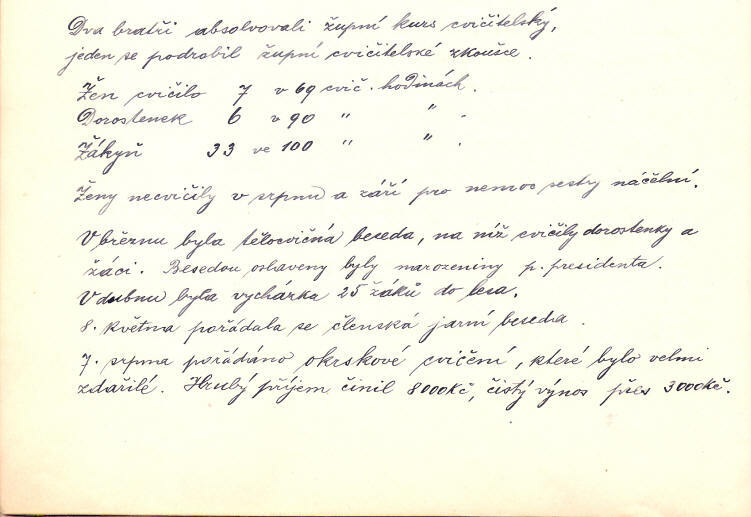 Dva bratři absolvovali župní kurs cvičitelský,
jeden se podrobil župní cvičitelské zkoušce.
Žen cvičilo 7 v 69 cvič. hodinách.
Dorostenek 6 v 90 " " .
Žákyň 33 ve 100 " " .
Ženy necvičily v srpnu a září pro nemoc sestry náčelní.
V březnu byla tělocvičná beseda, na níž cvičily dorostenky a
žáci. Besedou oslaveny byly narozeniny p. presidenta.
V dubnu byla vychárka 25 žáků do lesa.
8. května pořádala se členská jarní beseda.
7. srpna pořádáno okrskové cvičení, které bylo velmi
zdařilé. Hrubý příjem činil 8000Kč, čistý výnos přes 3000Kč.